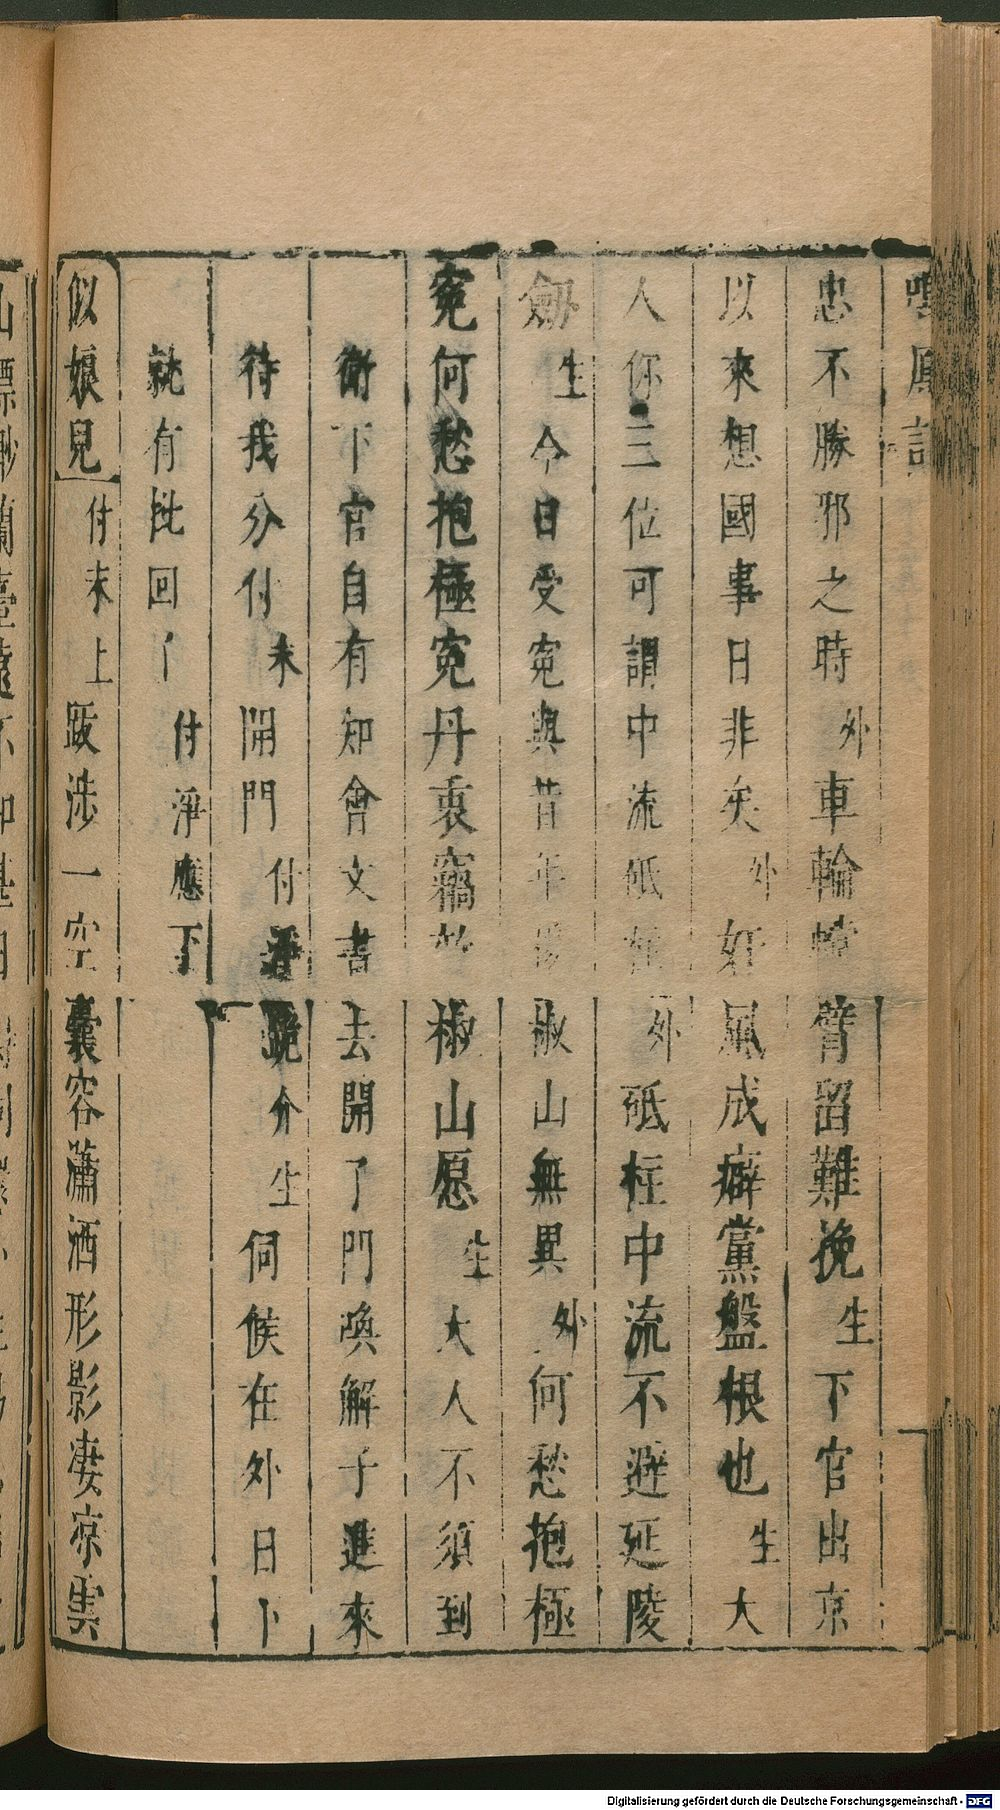 鳴鳳記
忠不勝邪之時外車輪螳臂留難挽生下官出京
以來想國事日非矣外奸風成癖黨盤根也生大
人你三位可謂中流砥柱外砥柱中流不避延陵
劔生今日受寃與昔年楊椒山無異外何愁抱極
寃何愁抱極寃丹衷竊效椒山愿生大人不須到
衙下官自有知會文書去開了門喚解子進來
待我分付末開門付淨跪介生伺候在外日下
就有批回丨付淨應下
似娘兒付末上跋涉一空囊容瀟洒形影凄凉雲
Digitalisierung gefördert durch die Deutsche Forschungsgemeinschaft - DFG